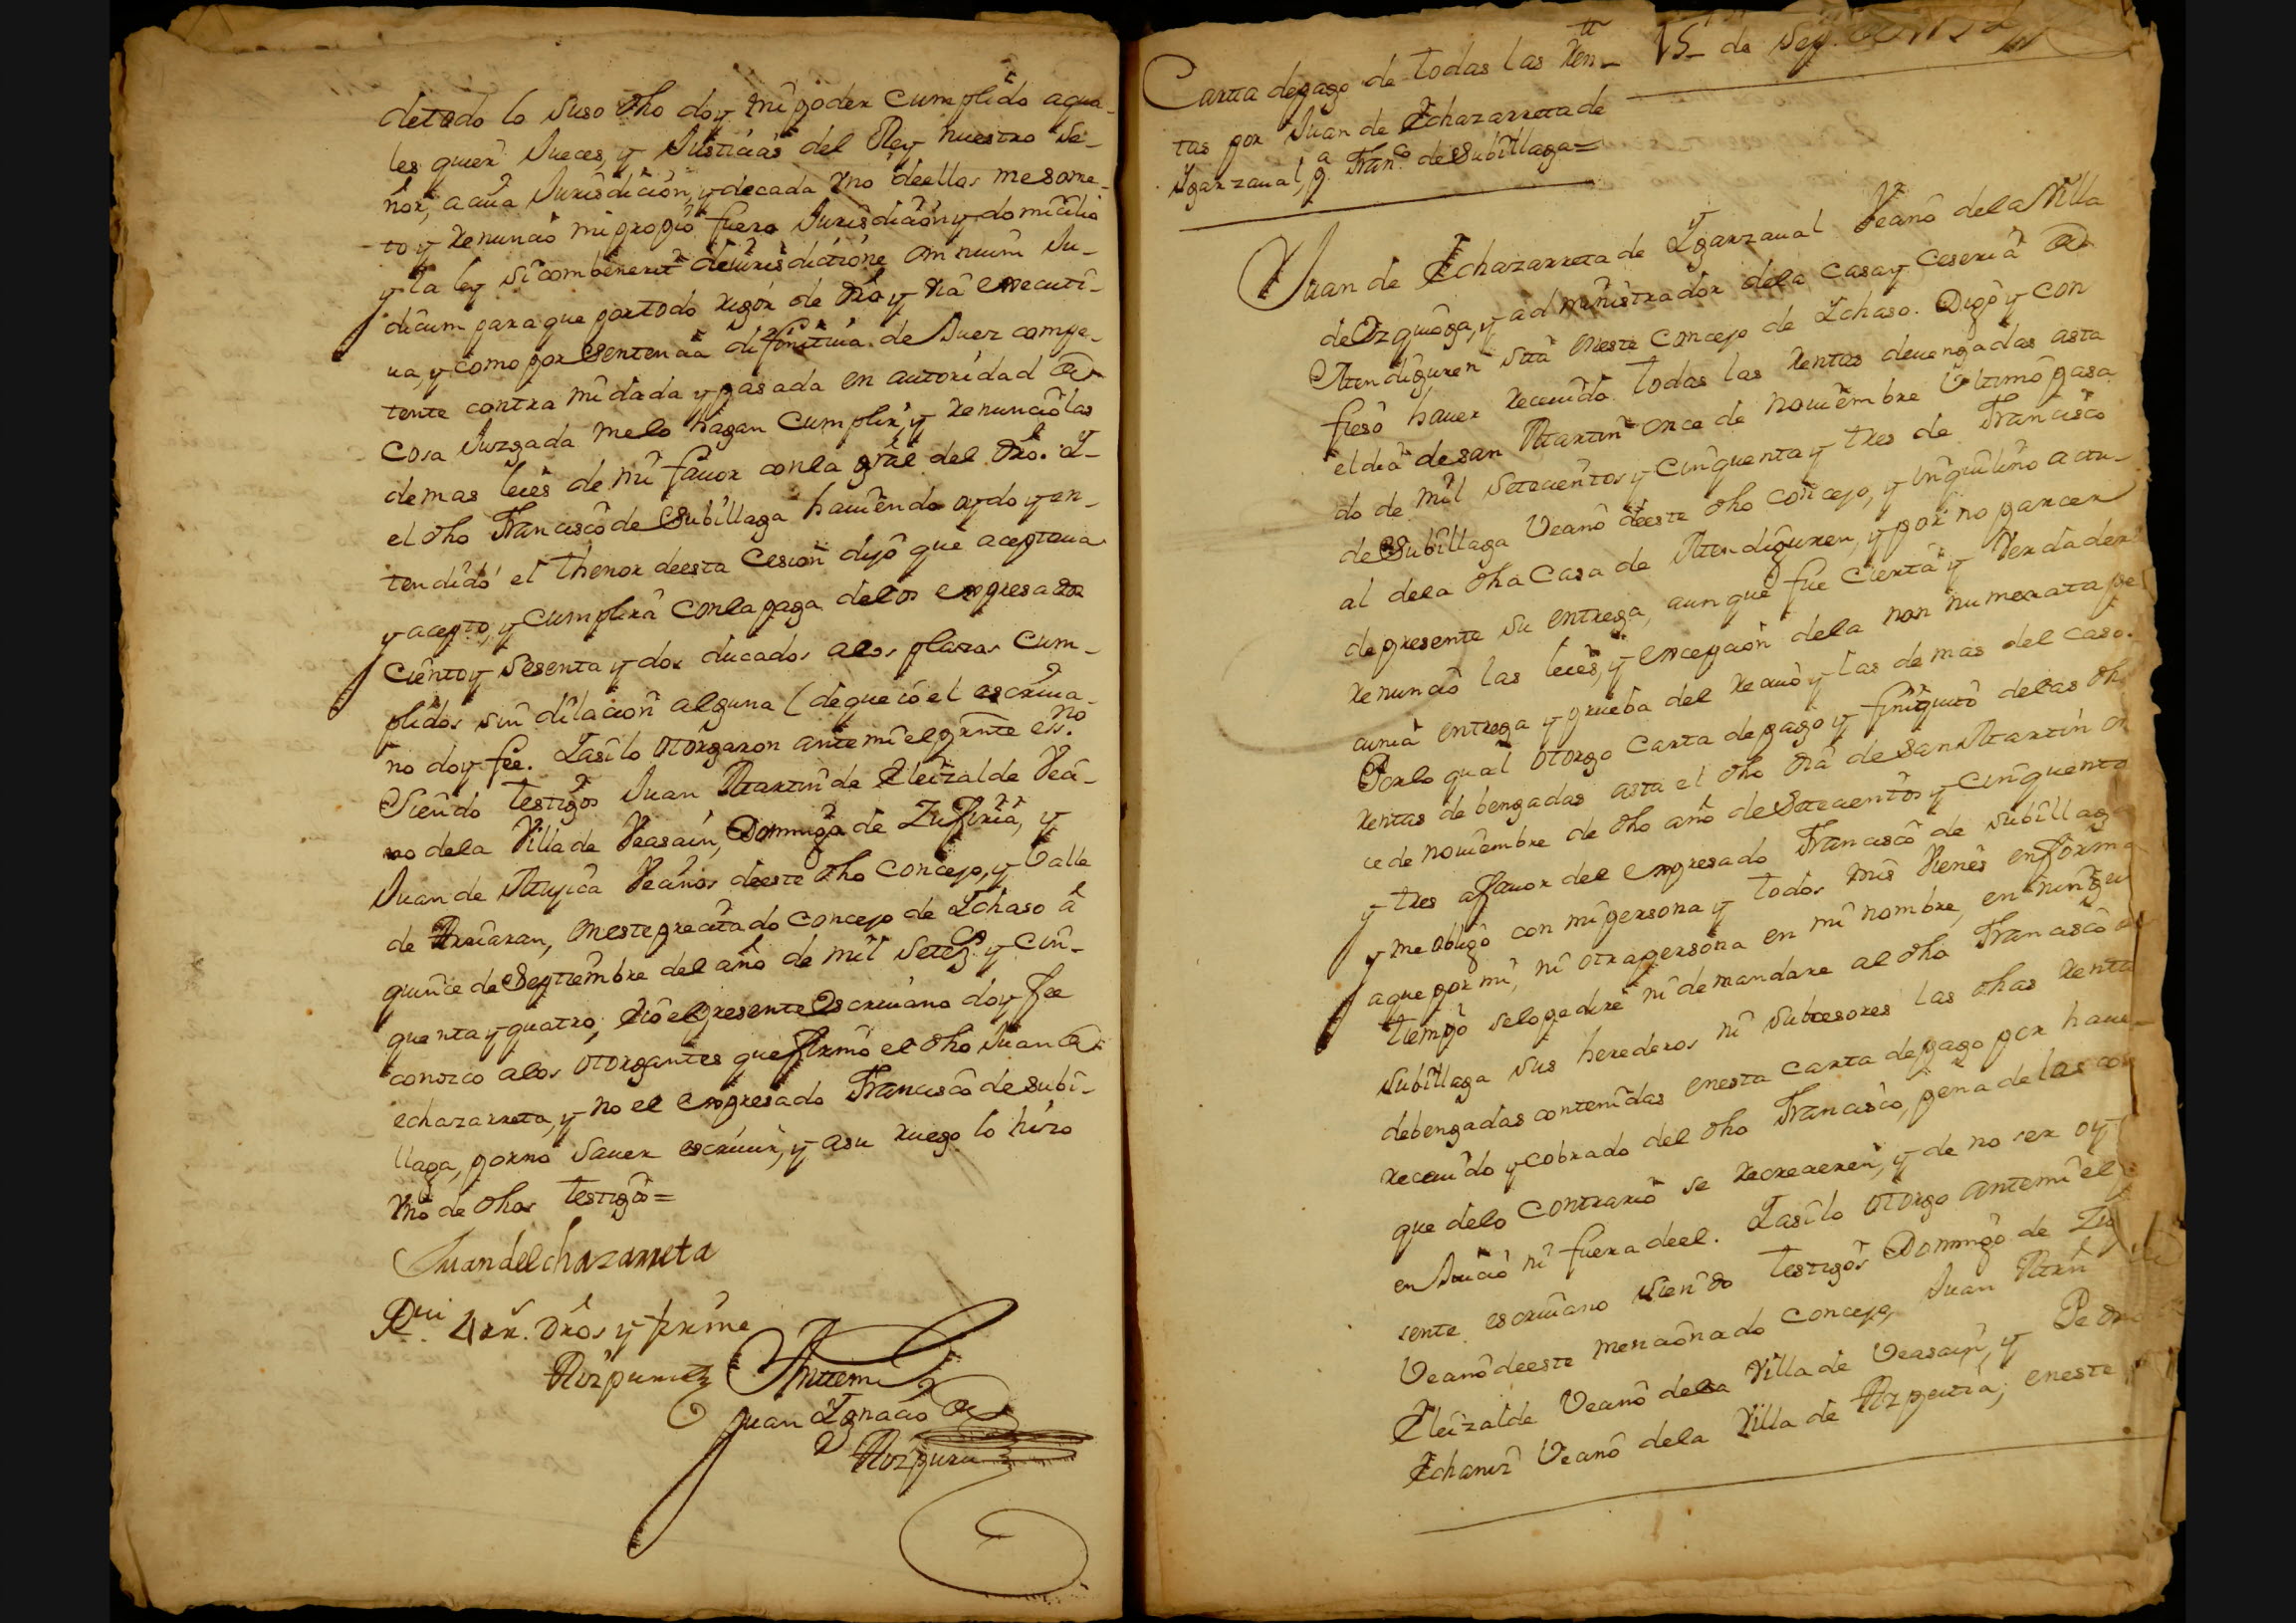 detodo lo suso dho doy mi poder cumplido aqua-
les quier Jueces, y Justicias del Rey nuestro Se-
ñor, a cuia Jurisdicion, y decada vno deellos me some-
to y renuncio mi propio fuero Jurisdicion y domicilio
y la ley si combenerit de iurisdictione omnium Ju-
dicum para que por todo rigor de dro y via executi-
ua, y como por sentencia difinitiua de Juez compe-
tente contra mi dada y pasada en autoridad de
cosa Juzgada melo hagan cumplir, y renuncio las
demas leies de mi fauor con la gral del dro. Y
el dho Francisco de Subillaga hauiendo oydo y en-
tendido el thenor deesta cesion dijo que aceptaua
y acepto, y cumplira con la paga delos expresados
ciento y sesenta y dos ducados alos plazos cum-
plidos sin dilacion alguna (de que io el escriua-
no doy fee. Y asi lo otorgaron ante mi el prnte essno.
Siendo testigos Juan Martin de Eleizalde Veci-
no dela Villa de Veasain, Domingo de Zufiria, y
Juan de Mujica Vecinos deeste dho concejo, y Valle
de Arriaran, en este precitado concejo de Ichaso a
quince de Septiembre del año de mil setecs. y cin-
quenta y quatro, e io el presente Escriuano doy fee
conozco alos otorgantes que firmo el dho Juan de
echazarreta, y no el expresado Francisco de Subi-
llaga, por no sauer escriuir, y asu ruego lo hizo
vno de dhos testigos=
Juan de Echazarreta
Rui 4 rr. dros y firme
Aizpuru
Ante mi
Juan Ignacio de
Aizpuru
Carta de pago de todas las Ren-
tas por Juan de Echazarreta de
Igarzaual, a Franco de Subillaga=
15 de Sep.
Juan de Echazarreta de Ygarzaual Vecino dela Villa
de Ezquioga, y administrador dela casa y Caseria de
Mendiguren sita en este concejo de Ichaso. Digo y con
fieso hauer receuido todas las rentas deuengadas asta
el dia de san Martin once de nouiembre vltimo pasa
do de mil setecientos y cinquenta y tres de Francisco
de Subillaga Vecino deeste dho concejo, y inquilino actu-
al dela dha Casa de Mendiguren, y por no parecer
de presente su entrega, aunque fue cierta y Verdadera
renuncio las leies, y excepcion dela non numerata pe
cunia entrega y prueba del reciuo y las demas del caso.
Por lo qual otorgo carta de pago y finiquito delas dh
Rentas debengadas asta el dho dia de San Martin on
ce de nouiembre de dho año de Setecientos y cinquenta
y tres a fauor del expresado Francisco de Subillaga
y me obligo con mi persona y todos mis Vienes en forma
a que por mi, ni otra persona en mi nombre, en ningun
tiempo selo pedire ni demandare al dho Francisco de
Subillaga sus herederos ni subcesores las dhas Renta
debengadas contenidas en esta carta de pago por haue-
receuido y cobrado del dho Francisco, pena de las cos
que delo contrario se recrecieren, y de no ser oy
en Juicio ni fuera deel. Y asi lo otorgo ante mi el
sente escriuano siendo testigos Domingo de Zu
Vecino deeste mencionado concejo, Juan Mrn de
Eleizalde Vecino dela Villa de Veasain, y Pedro
Echaniz Vecino dela Villa de Azpeitia; en este